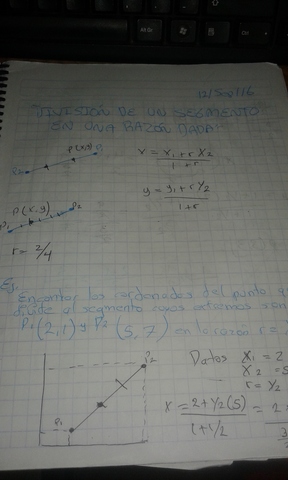 12/Sep/16
"DIVISIÓN DE UN SEGMENTO
EN UNA RAZÓN DADA"
P(x,y)
x = x₁ + r x₂
1 + r
y = y₁ + r y₂
1 + r
P(x,y)
P₁
P₂
r = 2/4
Ej.
Encontrar las cordenadas del punto q
divide al segmento cuyos extremos son
P₁(2,1) y P₂ (5,7) en la razón r =
P₂
P₁
Datos x₁ = 2
x₂ = 5
r = 1/2
x = 2 + 1/2 (5) = 2
1 + 1/2
3
Alt